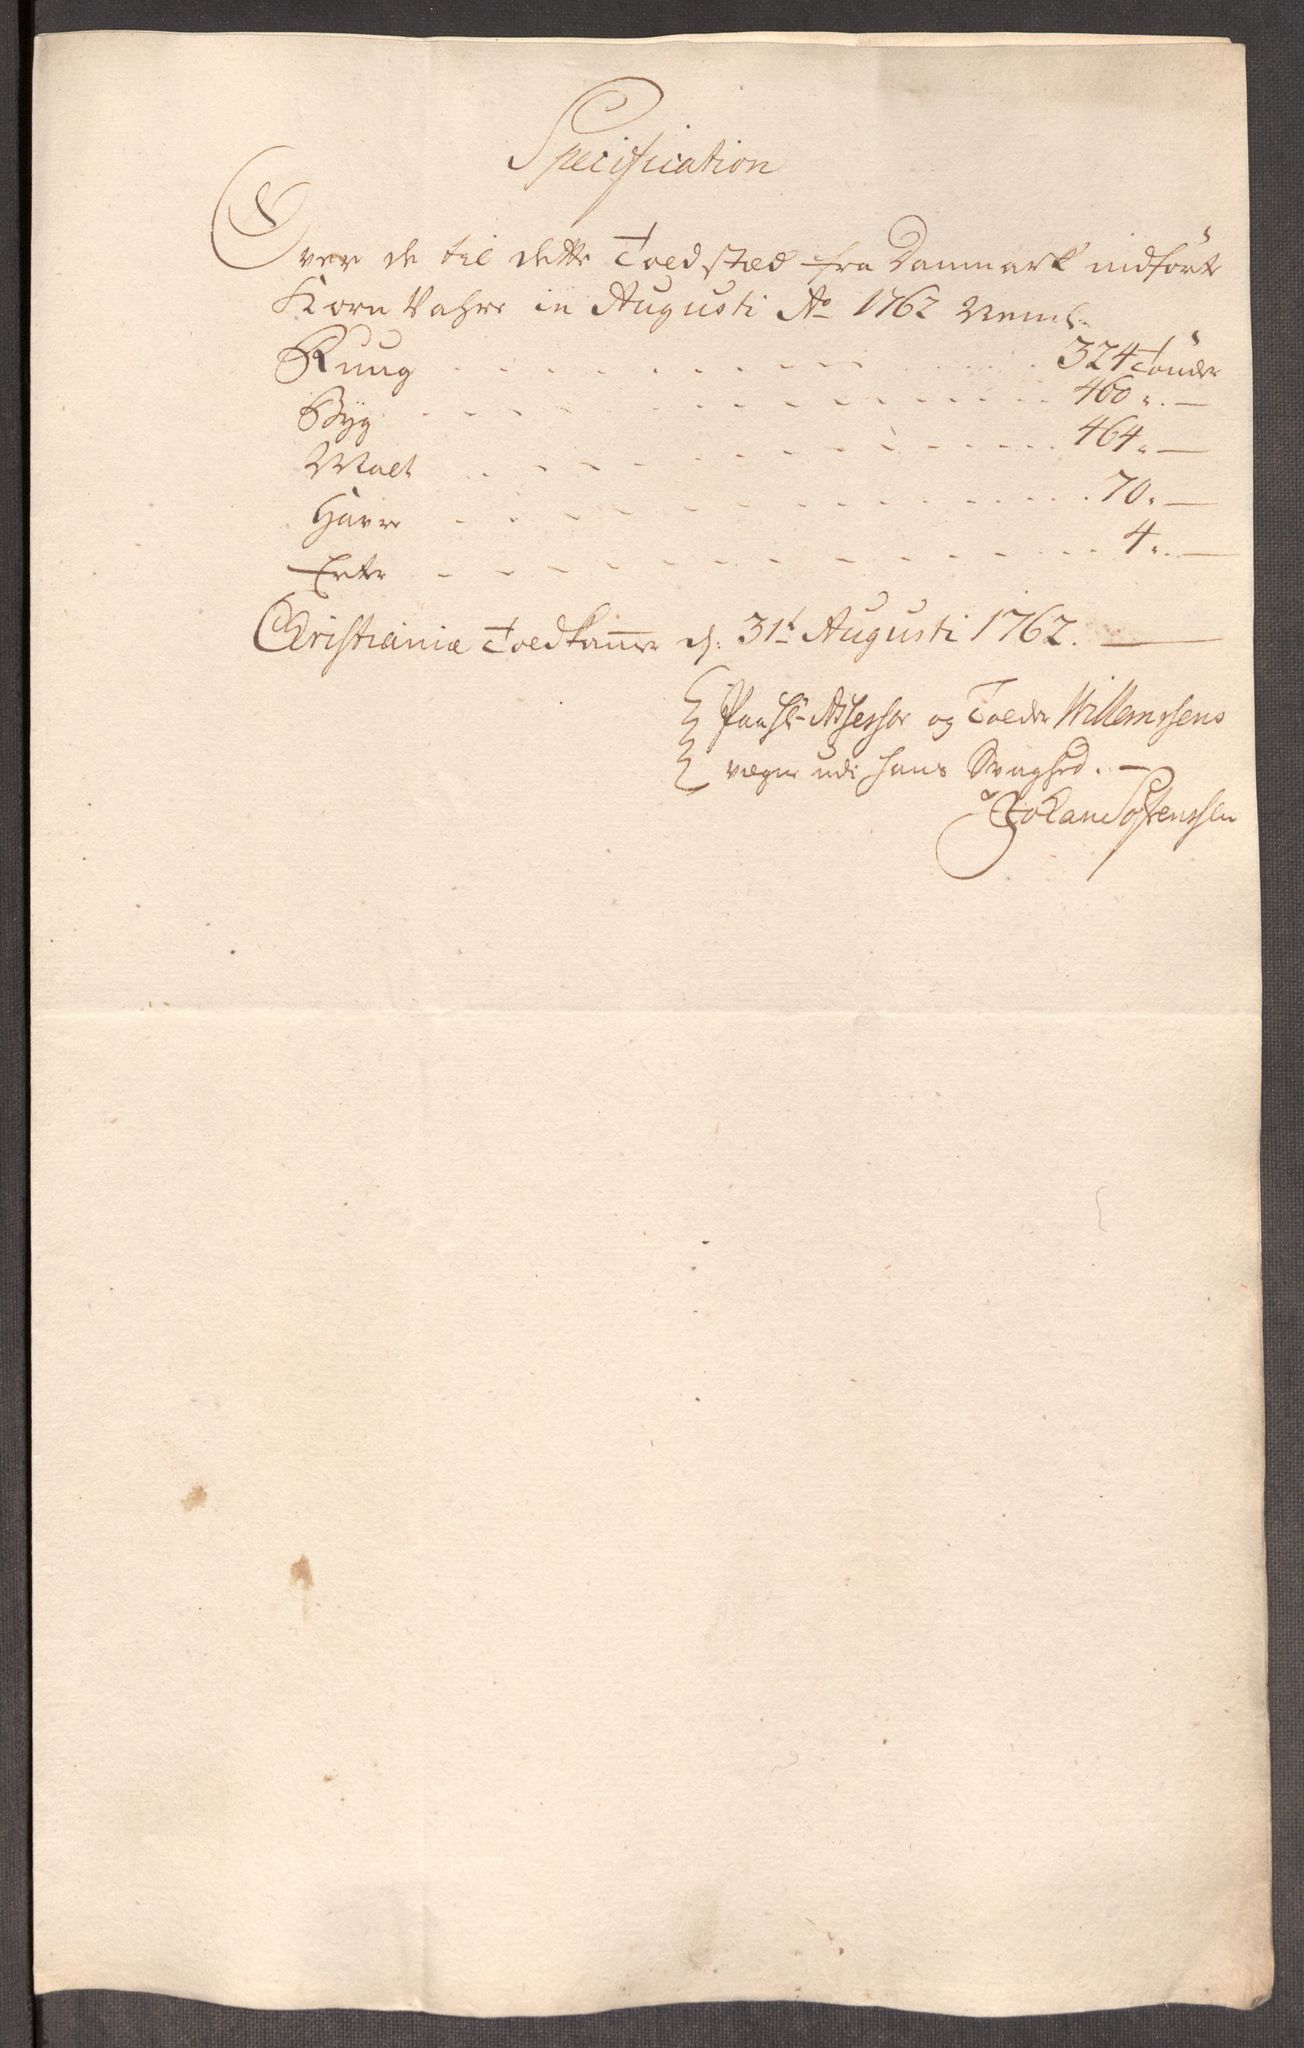 Specification
Over de til dette Toldstæd fra Danmark indförte
Korn Vahre in Augusti Ao 1762 Neml:
Ruug . . . . . . . . . . 324 Tönder
Byg . . . . . . . . . . 460 „ —
Malt . . . . . . . . . . 464 „ —
Havre . . . . . . . . . . 70 „ —
Erter . . . . . . . . . . 4 „ —
Christiania Toldkammer d: 31t Augusti 1762. —
Paa Hr Assessor og Tolder Willemsens
vegne udi hans Svaghed. —
Johan Sörenssen